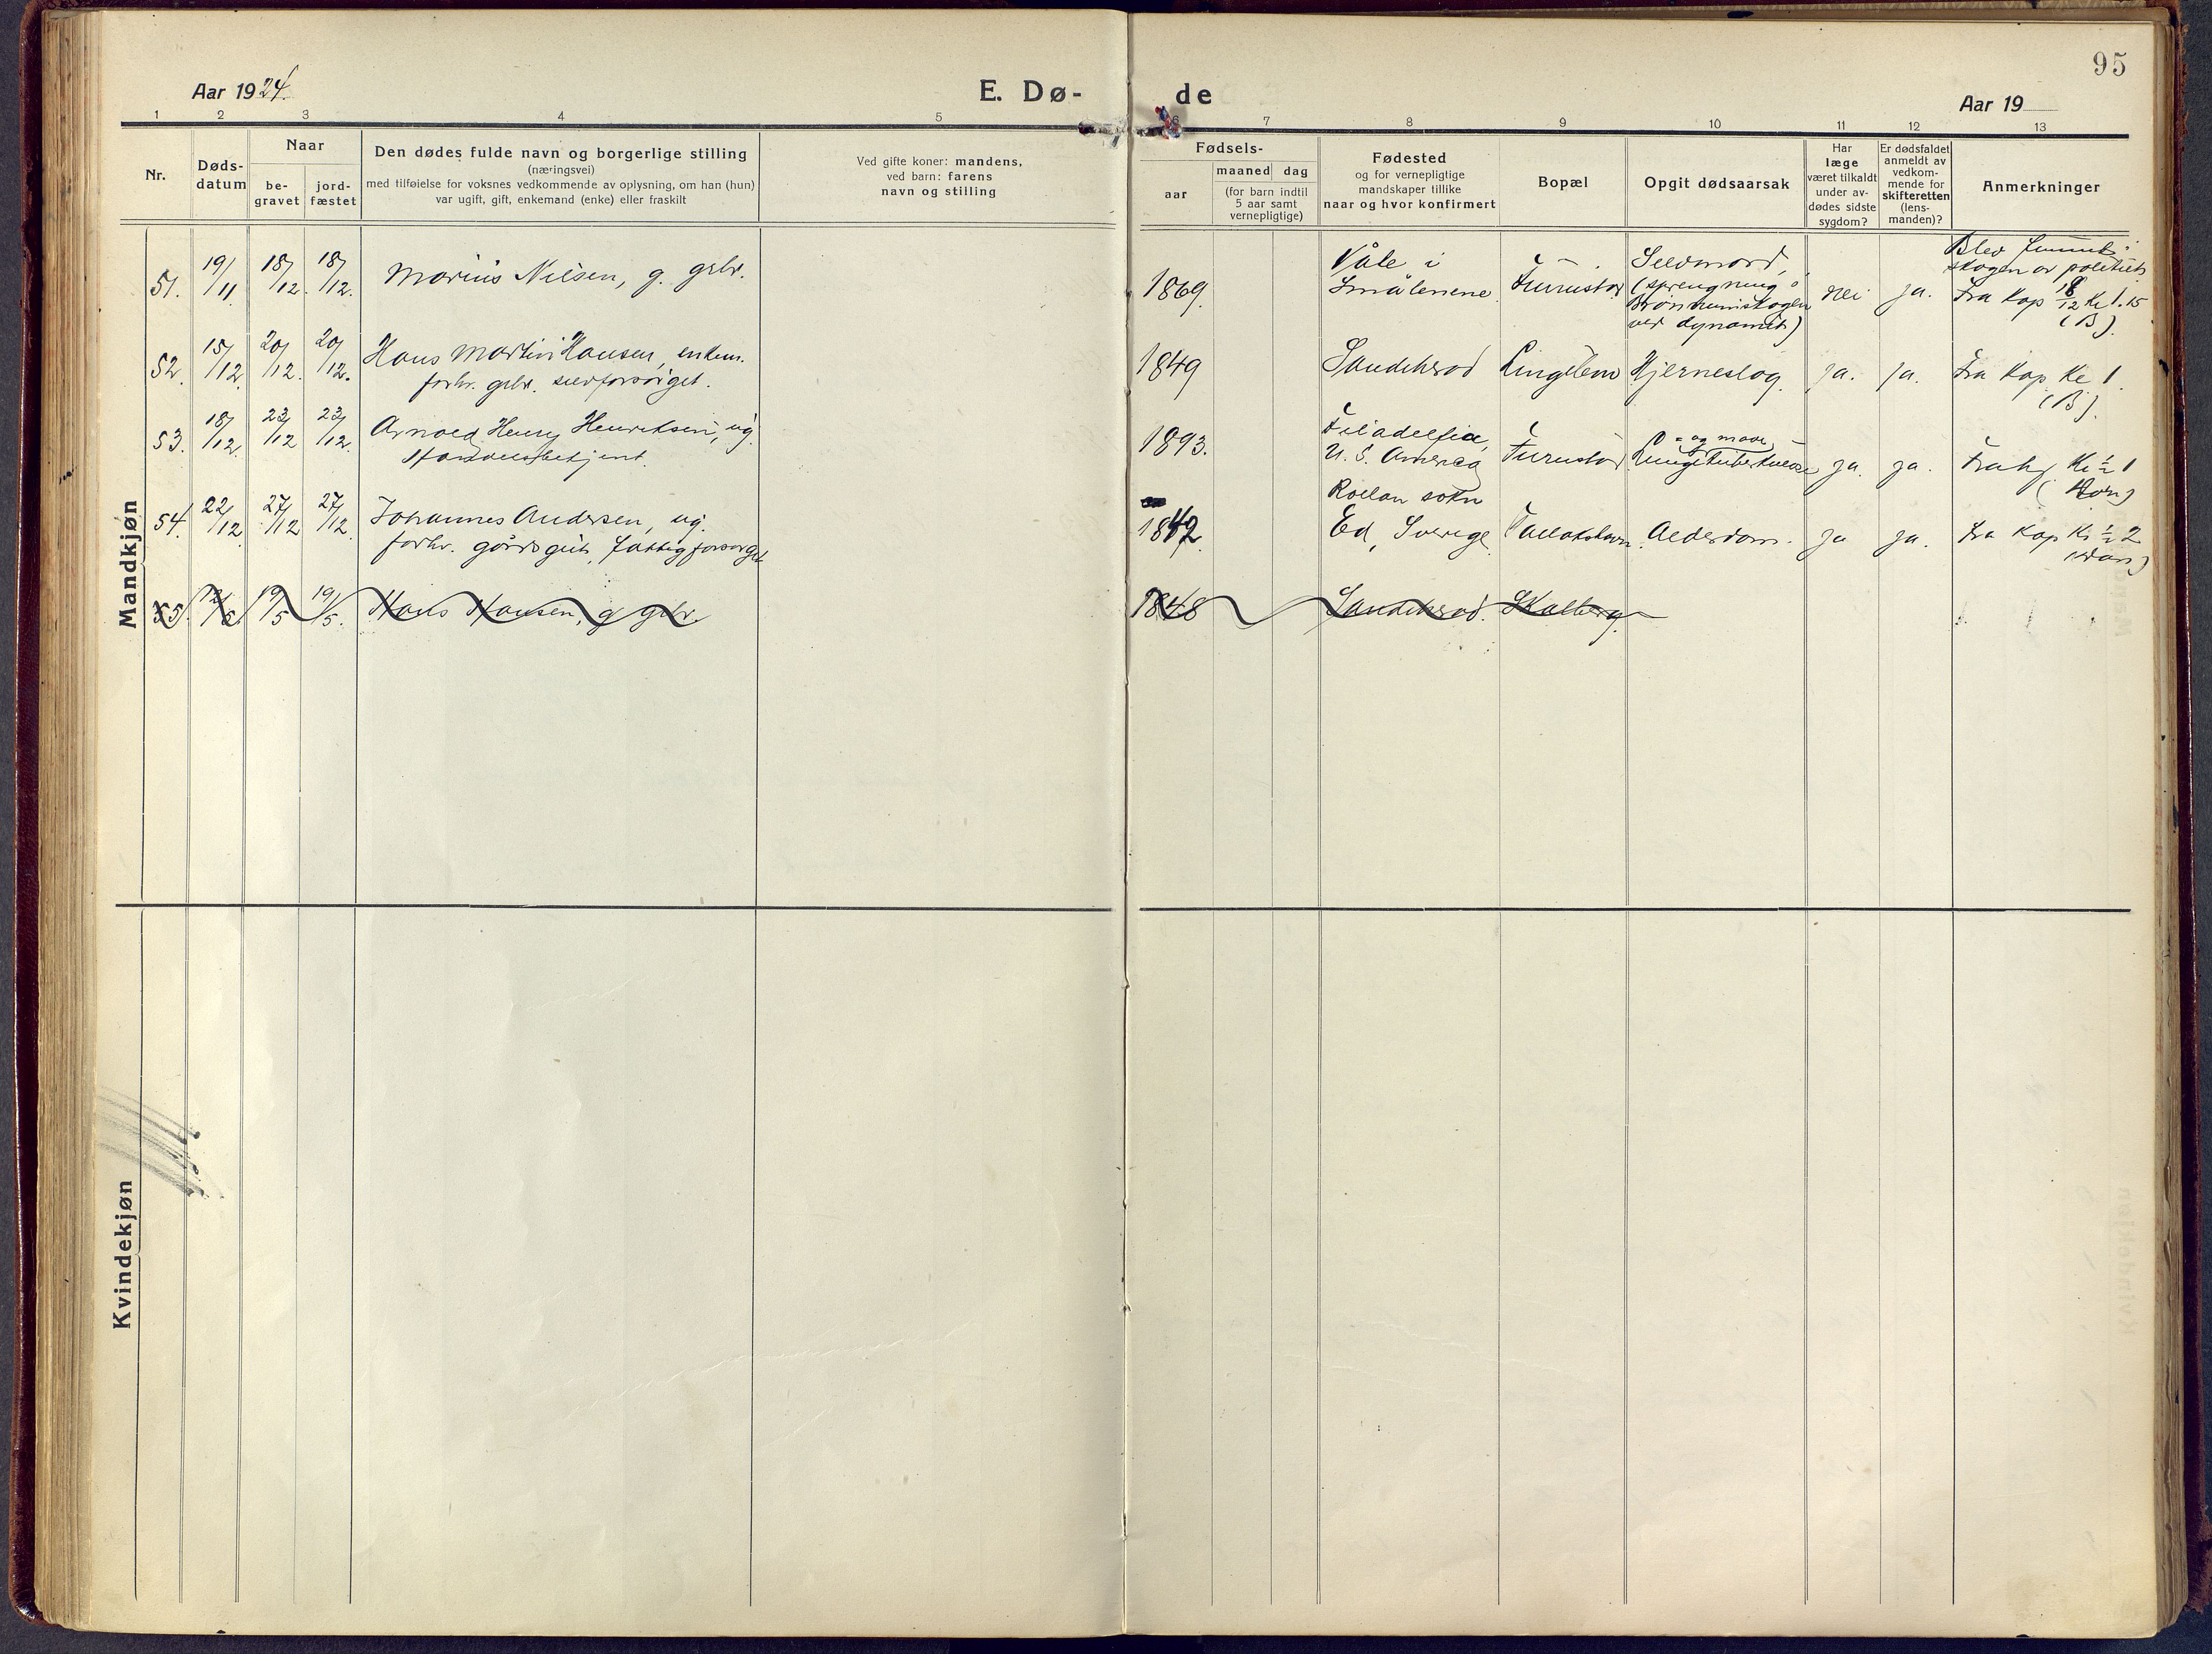 95
Aar 1924.
E. Dø-
de
Aar 19
1 2 3 4 5 6 7 8 9 10 11 12 13
Nr.
Døds-
datum
Naar
be-
gravet
jord-
fæstet
Den dødes fulde navn og borgerlige stilling
(næringsvei)
med tilføielse for voksnes vedkommende av oplysning, om han (hun)
var ugift, gift, enkemand (enke) eller fraskilt
Ved gifte koner: mandens,
ved barn: farens
navn og stilling
Fødsels-
aar
maaned dag
(for barn indtil
5 aar samt
vernepligtige)
Fødested
og for vernepligtige
mandskaper tillike
naar og hvor konfirmert
Bopæl
Opgit dødsaarsak
Har
læge
været tilkaldt
under av-
dødes sidste
sygdom?
Er dødsfaldet
anmeldt av
vedkom-
mende for
skifteretten
(lens-
manden)?
Anmerkninger
Mandkjøn
51. 19/11 18/12. 18/12. Marius Nilsen, g. grbr.
1869.
Våle i
Smålenene
Furustad
Selvmord,
(sprengning i
ved dynamit)
nei
ja.
Blev funnet i
skogen av politiet
Fra Kap 18/12 Kl 1.15
(B).
52. 15/12. 20/12. 20/12. Hans Martin Hansen, enkem.
forhv. grbr. selvforsørget.
1849 Sandeherod Lingelem Hjerneslag. ja. ja. Fra Kap Kl 1.
(B).
53. 18/12. 23/12 23/12. Arnold Henry Henriksen, ug.
Handelsbetjent.
1893.
Filadelfia,
U. S. America
Furustad
= og mave
Lungetuberkulose
ja. ja.
Kl ½ 1
54. 22/12. 27/12 27/12. Johannes Andersen, ug.
forhv. gårdsgut, fattigforsørget
1842.
Roelan sokn
Ed, Sverige.
Alderdom. ja ja. Fra Kap Kl ½ 2
55. 12/5. 19/5 19/5. Hans Hansen, g grbr.
1848 Sandeherod. Skalberg.
Kvindekjøn